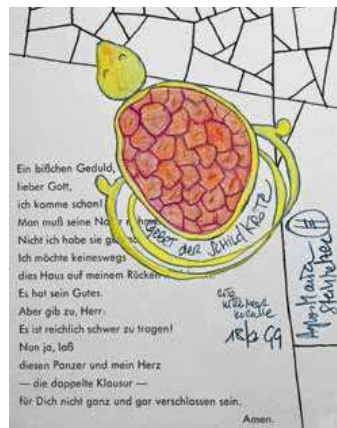 Ein bißchen Geduld,
lieber Gott,
ich komme schon!
Man muß seine
Nicht ich habe sie
Ich möchte keineswegs
dies Haus auf meinem Rücken
Es hat sein Gutes.
Aber gib zu, Herr:
Es ist reichlich schwer zu tragen!
Nun ja, laß
diesen Panzer und mein Herz
— die doppelte Klausur —
für Dich nicht ganz und gar verschlossen sein.
Amen.
Gebet der Schildkröte
18/2 99